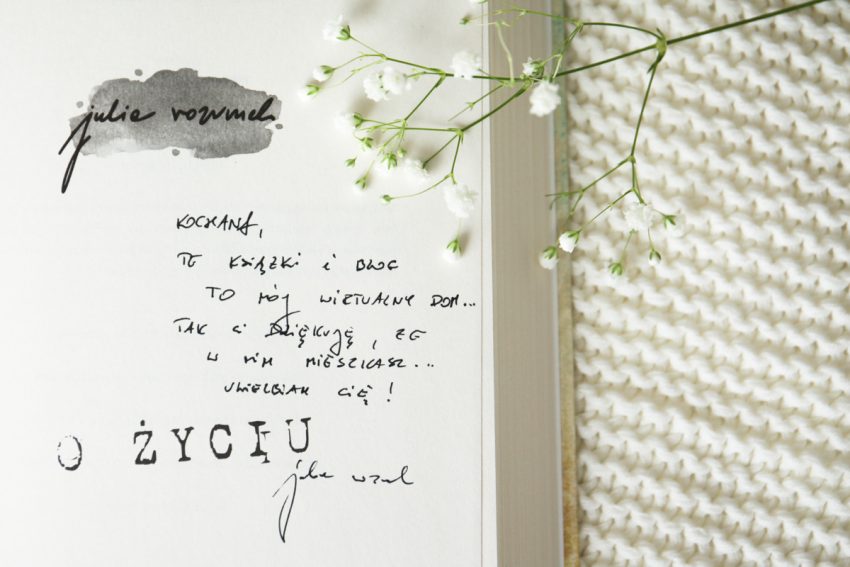 julia rozumek
KOCHANA,
TE KSIĄŻKI i BLOG
TO MÓJ WIRTUALNY DOM...
TAK CI DZIĘKUJĘ, ŻE
W NIM MIESZKASZ...
UWIELBIAM CIĘ!
O ŻYCIU
julia